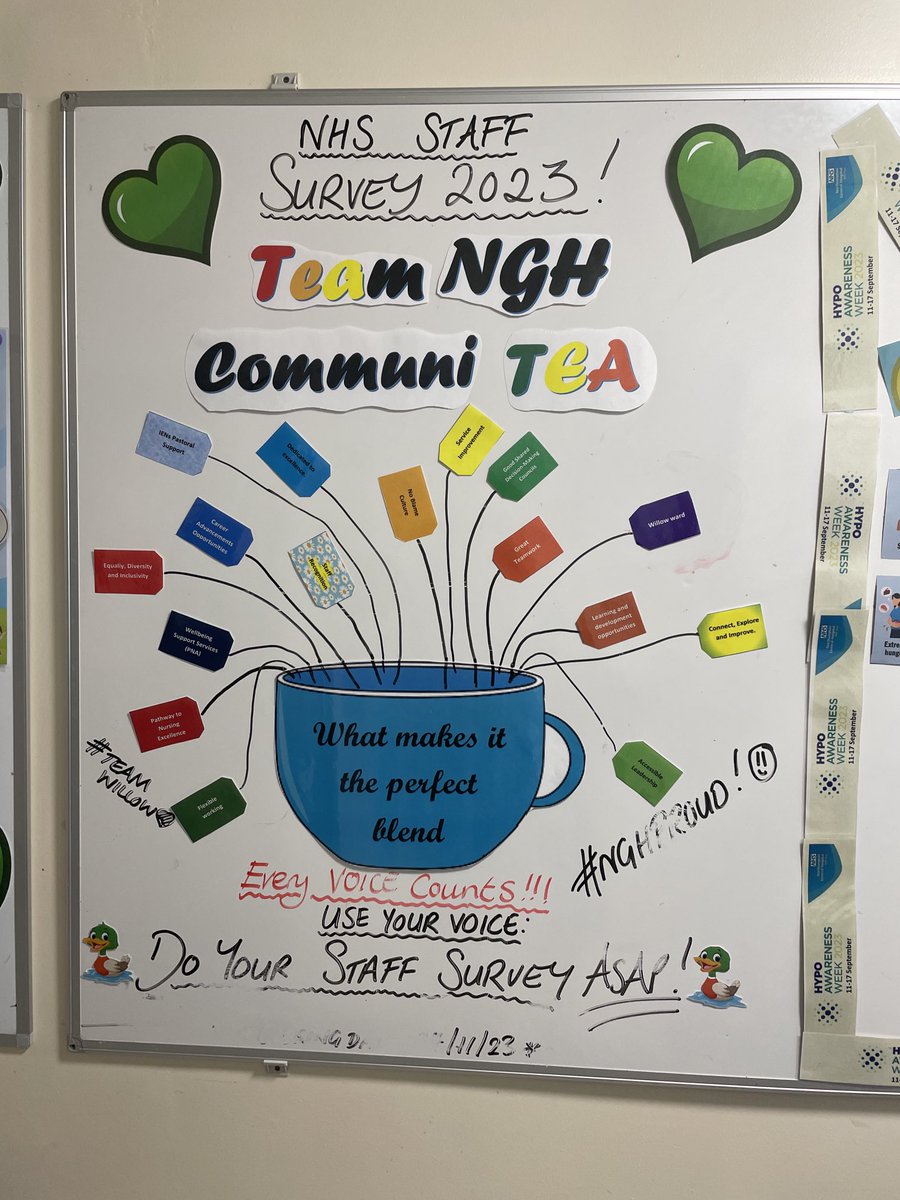 NHS STAFF
SURVEY 2023!
Team NGH
Communi TEA
IENs Pastoral
Support
Dedicated to
excellence.
No Blame
Culture
Service
Improvement
Good Shared
Decision-Making
Councils
Career
Advancements
Opportunities
Staff
Recognition
Great
Teamwork
Willow ward
Equaliy, Diversity
and Inclusivity
Wellbeing
Support Services
(PNA)
Learning and
development
opportunities
Connect, Explore
and Improve.
Pathway to
Nursing
Excellence
Flexible
working
Accessible
Leadership
What makes it
the perfect
blend
#TEAM
WILLOW
#NGHPROUD!
EVERY VOICE COUNTS!!!
USE YOUR VOICE:
DO YOUR STAFF SURVEY ASAP!
/11/23
NHS
HYPO
AWARENESS
WEEK 2023
11-17 September
HYPO
AWARENESS
WEEK 2023
11-17 September
NHS
HYPO
AWARENESS
WEEK 2023
11-17 September
NHS
HYPO
AWARENESS
WEEK 2023
11-17 September
HYPO
AWARENESS
WEEK 2023
11-17 September